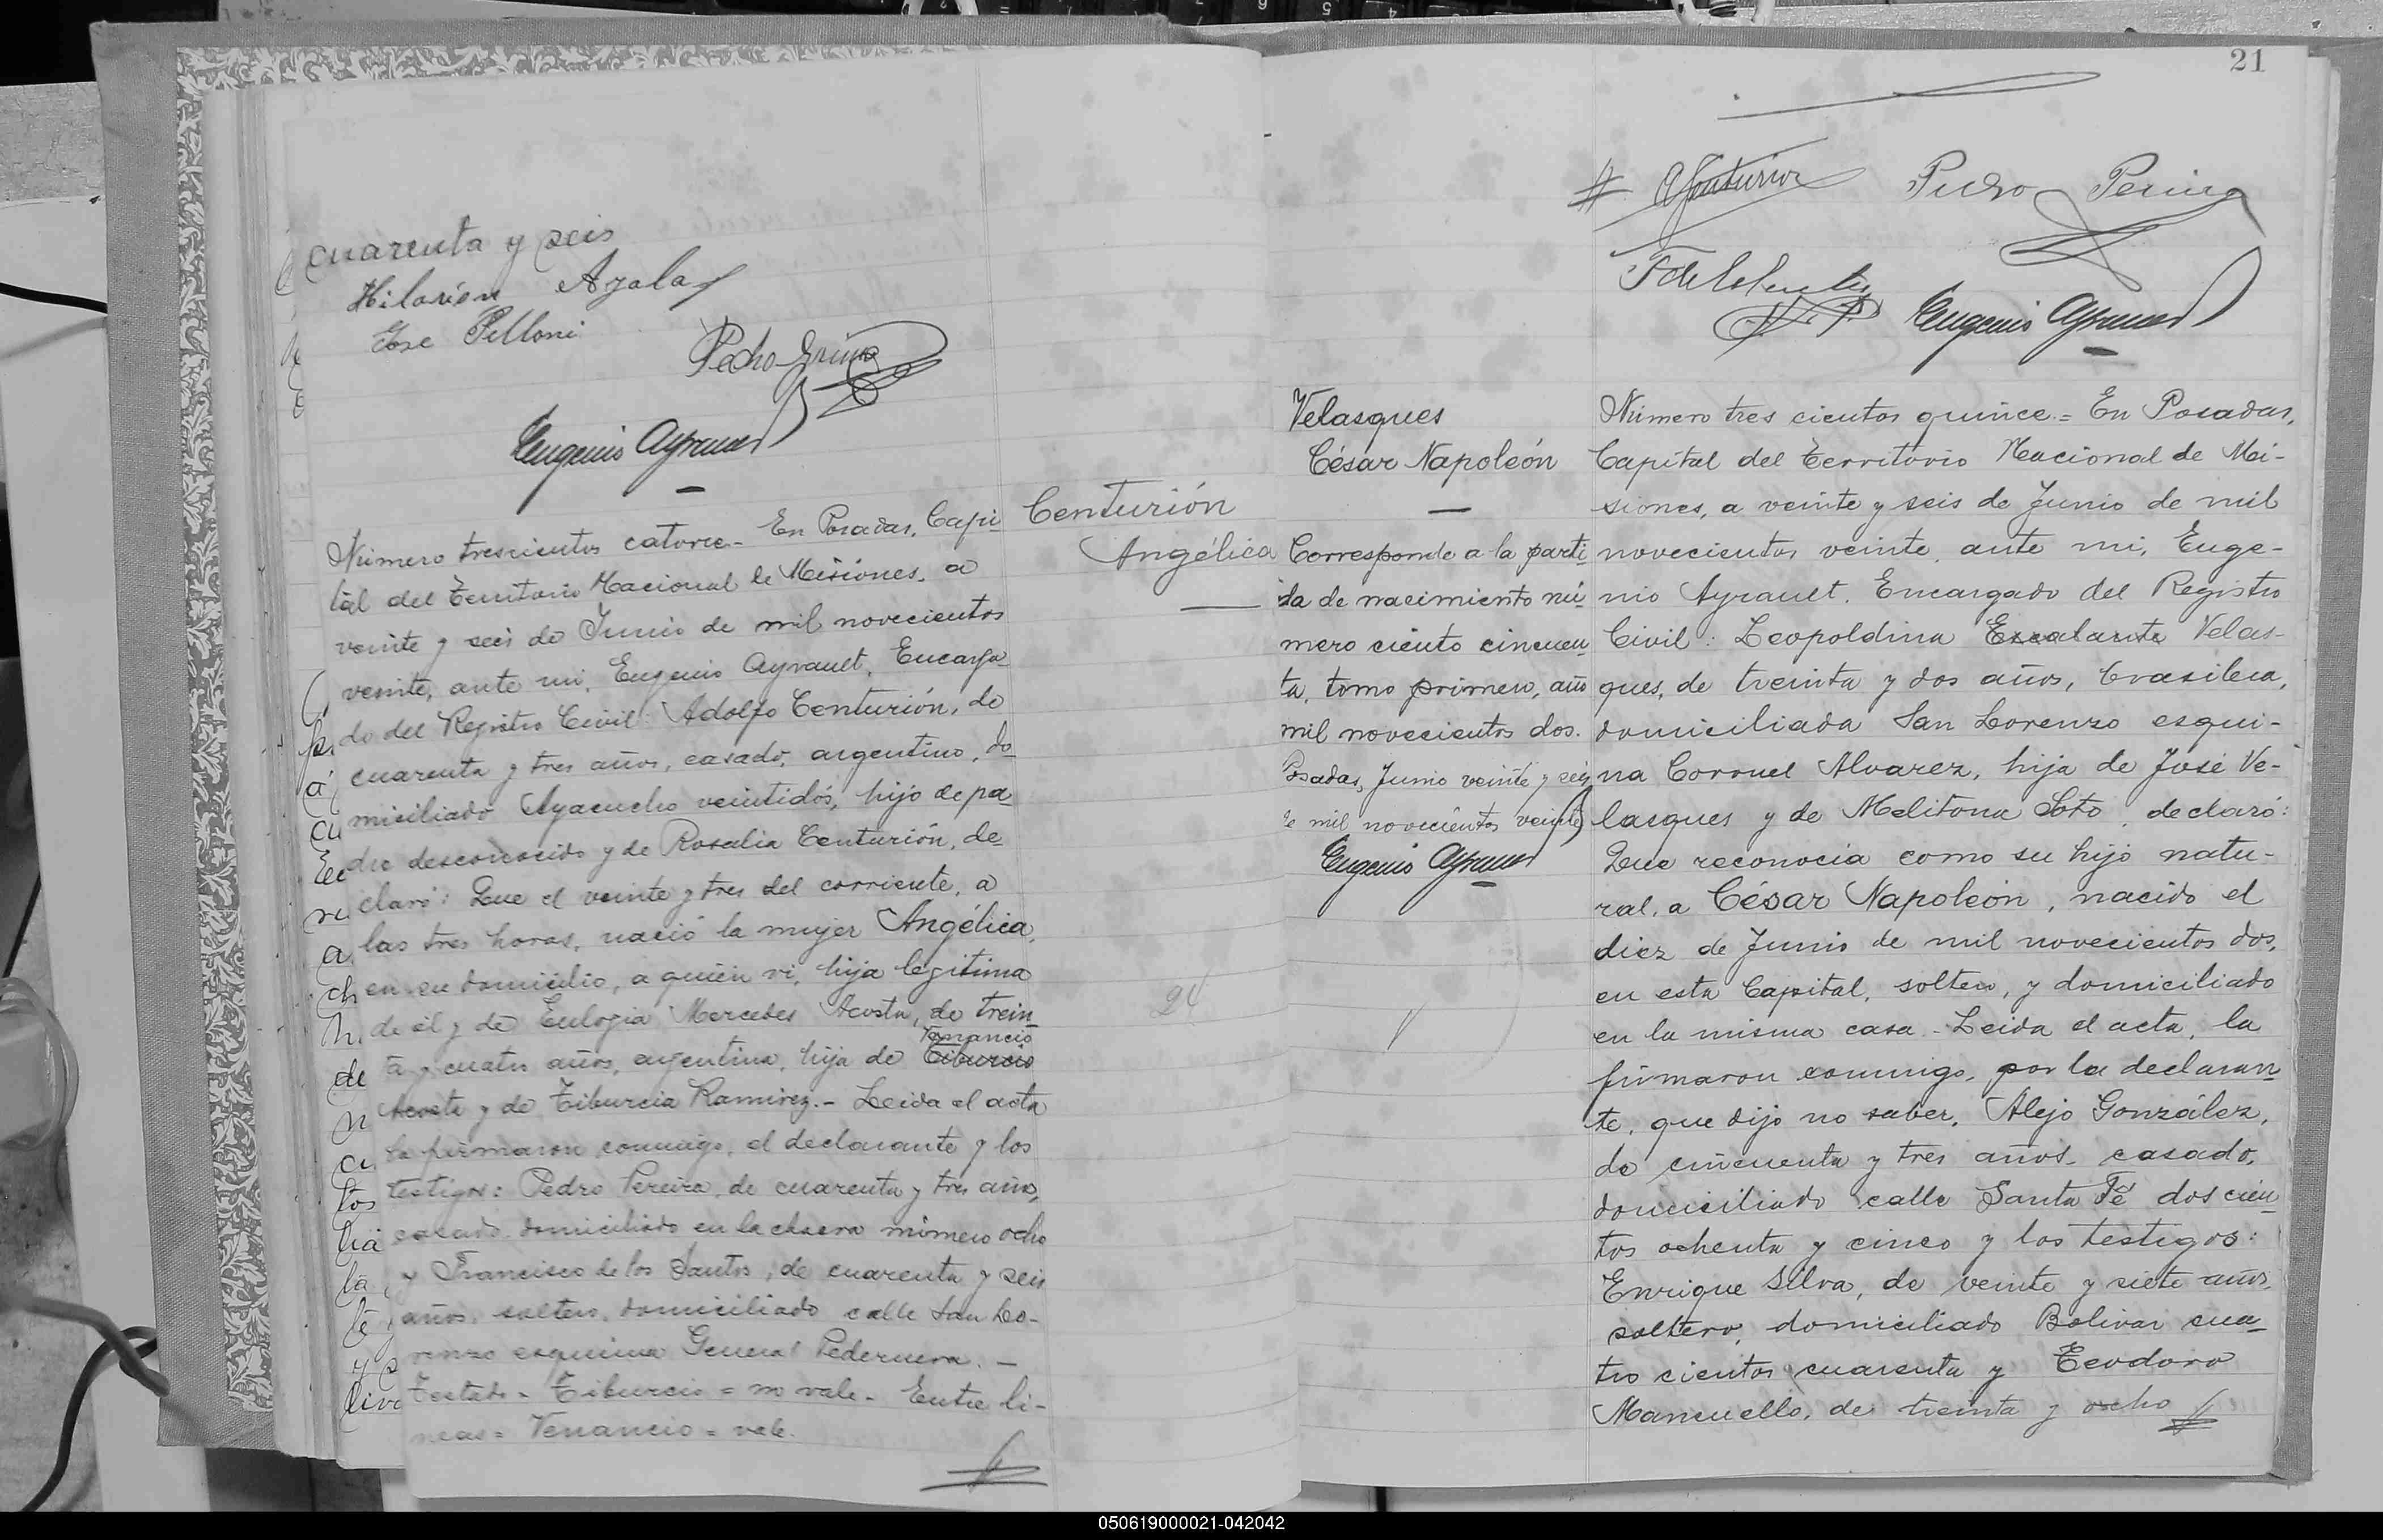 cuarenta y seis
Hilarión Ayala
Jose Pelloni
Pedro
Eugenio Ayrault
Centurión
Angélica
Número trescientos catorce - En Posadas, Capi
tal del Territorio Nacional de Misiones, a
veinte y seis de Junio de mil novecientos
veinte, ante mi, Eugenio Ayrault, Encarga
do del Registro Civil: Adolfo Centurión, de
cuarenta y tres años, casado, argentino, do
miciliado Ayacucho veintidós, hijo de pa
dre desconocido y de Rosalia Centurión, de
claró: Que el veinte y tres del corriente, a
las tres horas, nació la mujer Angélica,
en su domicilio, a quién vi, hija legitima
de él y de Eulogia Mercedes Acosta, de trein
Venancio
ta y cuatro años, argentina, hija de Tiburcio
Acosta y de Tiburcia Ramirez. - Leida el acta
la firmaron conmigo, el declarante y los
testigos: Pedro Pereira, de cuarenta y tres años,
casado, domiciliado en la chacra número ocho
y Francisco de los Santos, de cuarenta y seis
años, soltero, domiciliado calle San Lo-
renzo esquina General Pedernera. -
Testado - Tiburcio = no vale - Entre li-
neas = Venancio = vale.
24
21
# A Centurión Pedro Pereira
Eugenio Ayrault
Velasques
César Napoleón
Corresponde a la parti
da de nacimiento nú-
mero ciento cincuen
ta, tomo primero, año
mil novecientos dos.
Posadas, Junio veinte y seis
de mil novecientos veinte
Eugenio Ayrault
Número tres cientos quince = En Posadas,
Capital del Territorio Nacional de Mi-
siones, a veinte y seis de Junio de mil
novecientos veinte, ante mi, Euge-
nio Ayrault, Encargado del Registro
Civil: Leopoldina Escalante Velas-
ques, de treinta y dos años, brasilera,
domiciliada San Lorenzo esqui-
na Coronel Alvarez, hija de José Ve-
lasques y de Melitona Soto, declaró:
Que reconocia como su hijo natu-
ral, a César Napoleón, nacido el
diez de Junio de mil novecientos dos,
en esta Capital, soltero, y domiciliado
en la misma casa - Leida el acta, la
firmaron conmigo, por la declaran
te, que dijo no saber, Alejo González,
de cincuenta y tres años, casado,
domiciliado calle Santa Fé dos cien
tos ochenta y cinco y los testigos:
Enrique Silva, de veinte y siete años,
soltero, domiciliado Bolivar cua-
tro cientos cuarenta y Teodoro
Mancuello, de treinta y ocho
050619000021-042042